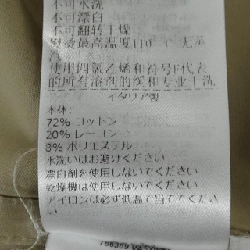 不可水洗
不可漂白
不可翻转干燥
使用四氯乙烯和符号F代表
的所有溶剂的缓和专业干洗
イタリア製
本体
72% コットン
20% レーヨン
8% ポリエステル
水洗いはお避けください
漂白剤を使用しないでください
乾燥機は使用しないでください
アイロンは必ず低温で当ててください